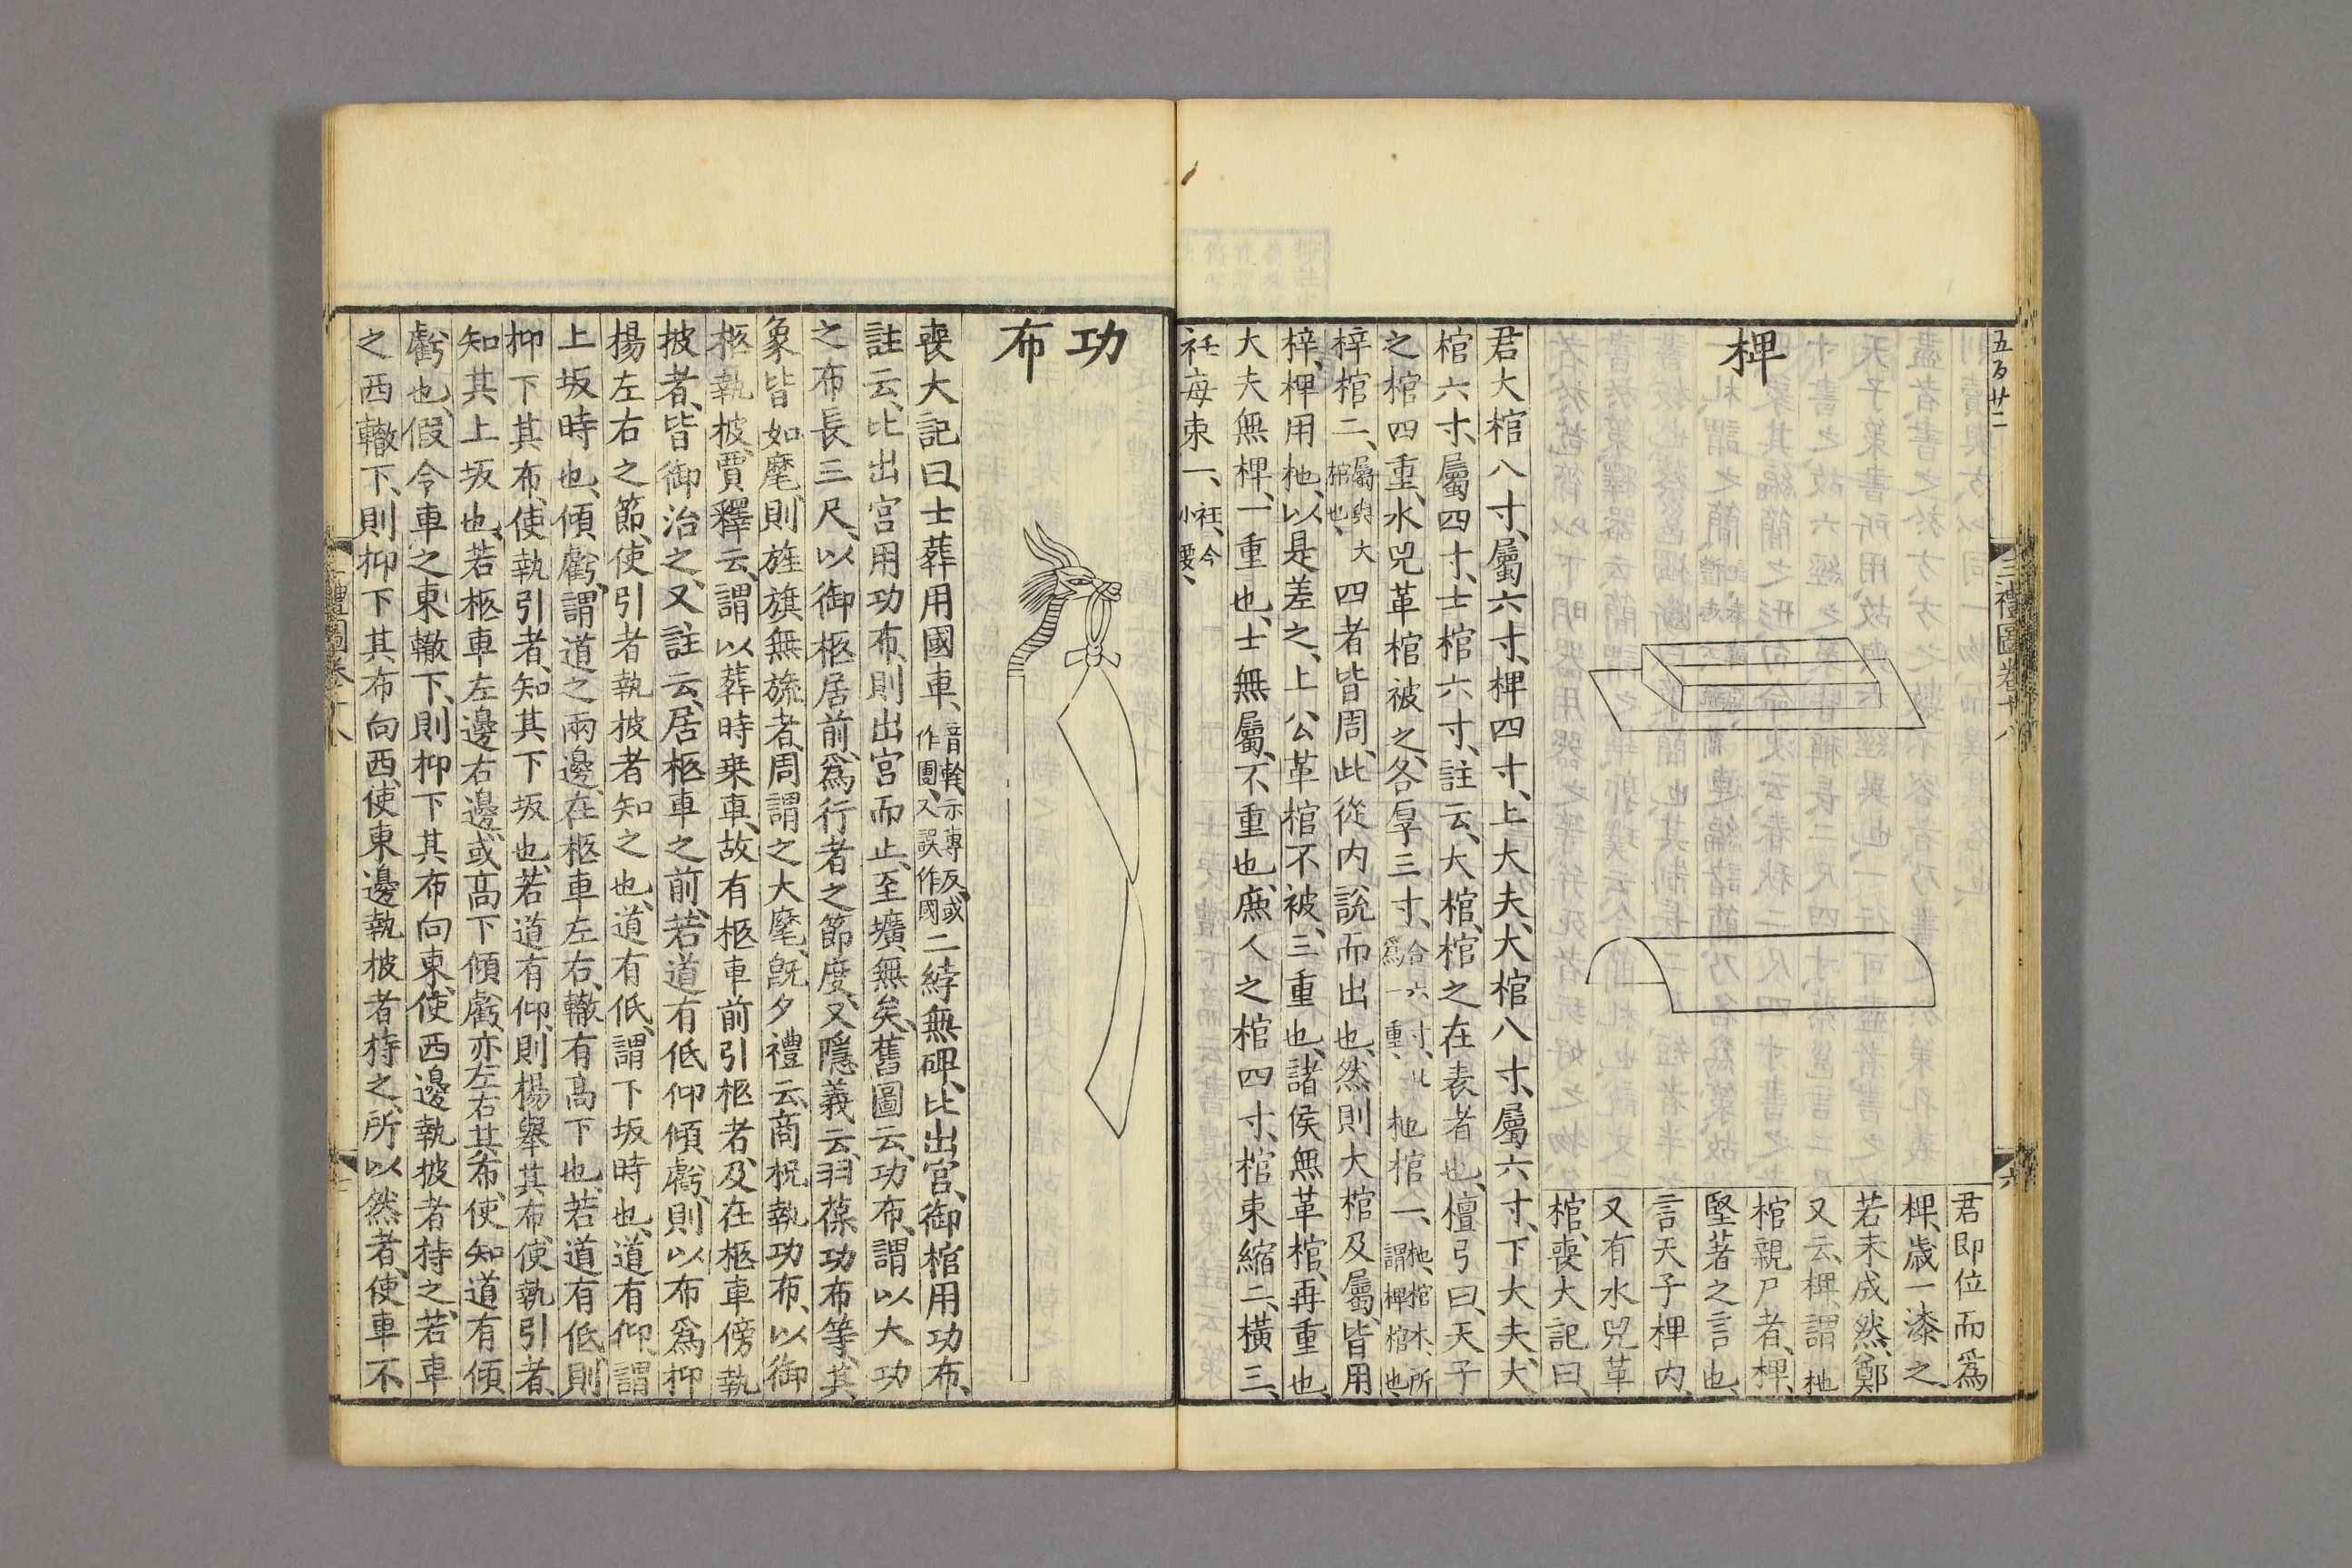 五百廿二
三禮圖卷十八
六
椑
君即位而爲
椑、歲一漆之、
若未成然、鄭
又云、椑、謂杝
棺親尸者、椑、
堅著之言也、
言天子椑内、
又有水兕革
棺、喪大記曰、
君大棺八寸、屬六寸、椑四寸、上大夫、大棺八寸、屬六寸、下大夫、大
棺六寸、屬四寸、士棺六寸、註云、大棺、棺之在表者也、檀弓曰、天子
之棺四重、水兕革棺被之、各厚三寸、合六寸、此爲一重、杝棺一、杝、棺木、所謂椑棺也、
梓棺二、屬與大棺也、四者皆周、此從内說而出也、然則大棺及屬、皆用
梓、椑用杝、以是差之、上公革棺不被、三重也、諸侯無革棺、再重也、
大夫無椑、一重也、士無屬、不重也、庶人之棺四寸、棺束縮二、橫三、
衽每束一、衽、今小腰、
功布
喪大記曰、士葬用國車、音輇、示專反、或作團、又誤作國二綍無碑、比出宮、御棺用功布、
註云、比出宮用功布、則出宮而止、至壙無矣、舊圖云、功布、謂以大功
之布長三尺、以御柩居前、爲行者之節度、又隱義云、羽葆功布等、其
象皆如麾、則旌旗無旒者、周謂之大麾、旣夕禮云、商祝執功布、以御
柩執披、賈釋云、謂以葬時乗車、故有柩車前引柩者、及在柩車傍執
披者、皆御治之、又註云、居柩車之前、若道有低仰傾虧、則以布爲抑
揚左右之節、使引者執披者知之也、道有低、謂下坂時也、道有仰、謂
上坂時也、傾虧、謂道之兩邊、在柩車左右、轍有高下也、若道有低、則
抑下其布、使執引者、知其下坂也、若道有仰、則揚舉其布、使執引者、
知其上坂也、若柩車左邊右邊、或高下傾虧、亦左右其布、使知道有傾
虧也、假令車之東轍下、則抑下其布向東、使西邊執披者持之、若車
之西轍下、則抑下其布向西、使東邊執披者持之、所以然者、使車不